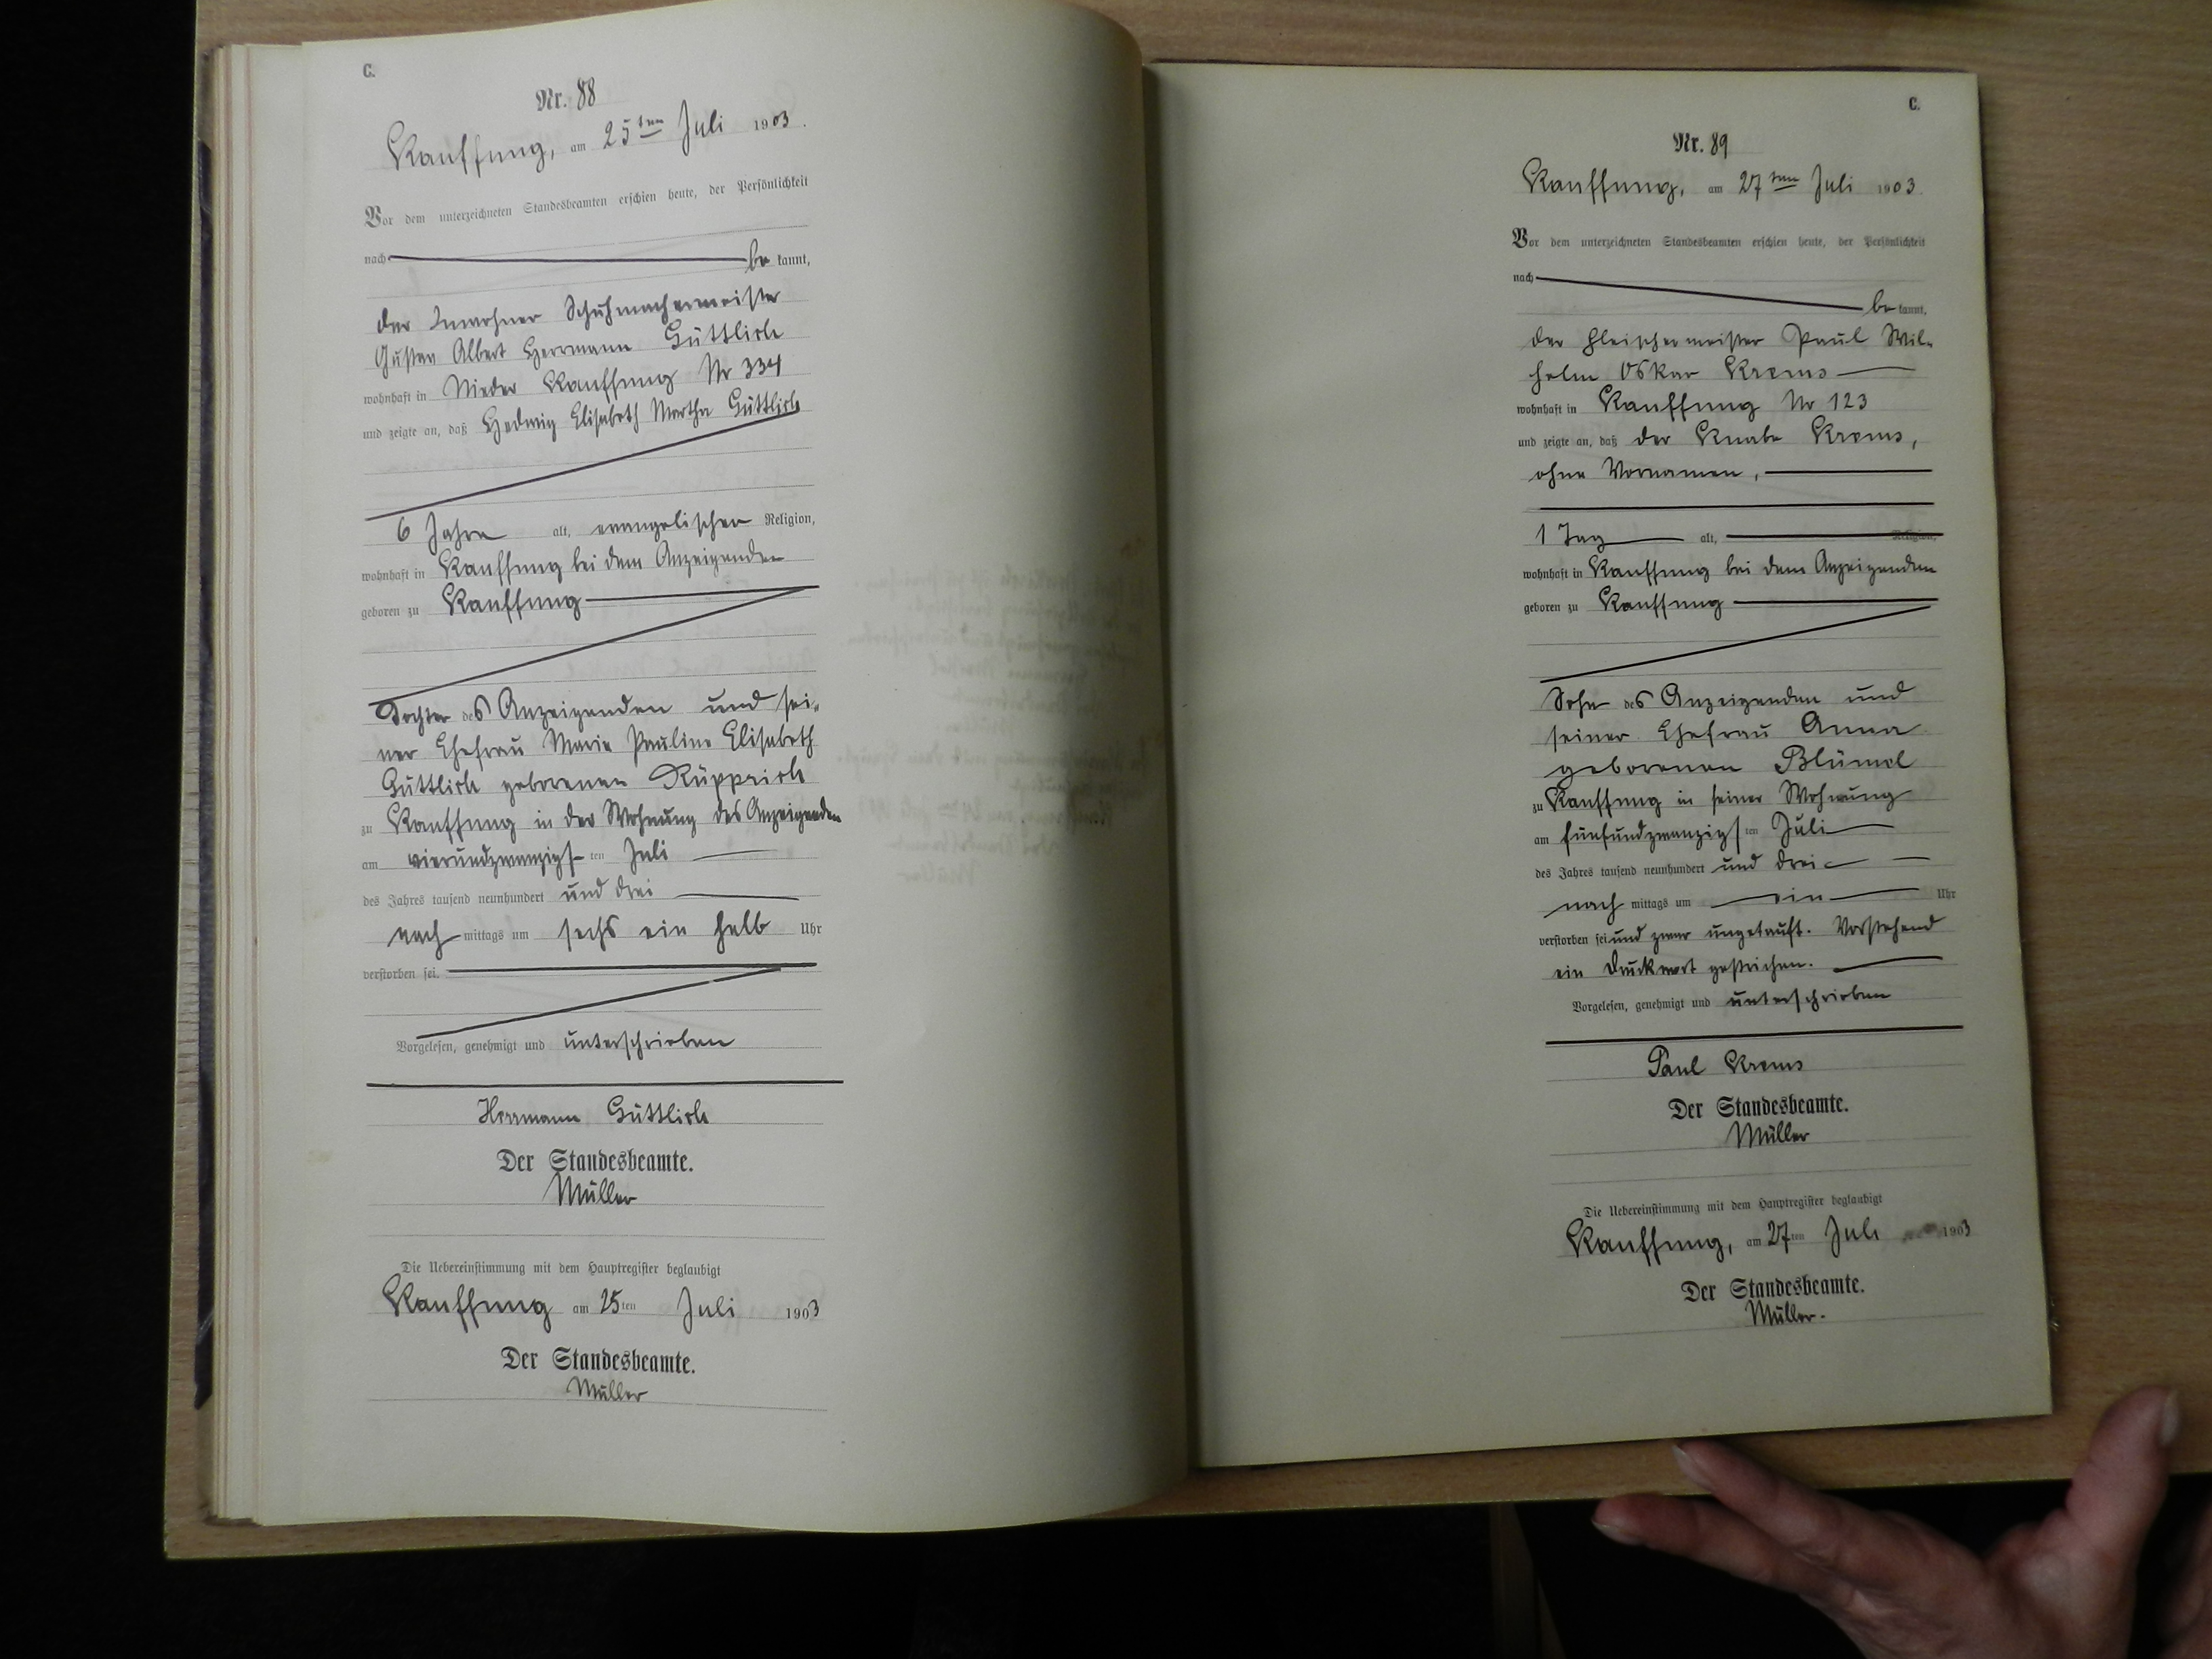 C.
Nr. 88
Kauffung, am 25ten Juli 1903.
Vor dem unterzeichneten Standesbeamten erschien heute, der Persönlichkeit
nach be kannt,
der Inwohner Schuhmachermeister
Gustav Albert Herrmann Güttlich
wohnhaft in Nieder Kauffung Nr 334
und zeigte an, daß Hedwig Elisabeth Martha Güttlich
6 Jahre alt, evangelischer Religion,
wohnhaft in Kauffung bei dem Anzeigenden
geboren zu Kauffung
Tochter des Anzeigenden und sei-
ner Ehefrau Marie Pauline Elisabeth
Güttlich geborenen Rüpprich
zu Kauffung in der Wohnung des Anzeigenden
am vierundzwanzigsten Juli
des Jahres tausend neunhundert und drei
nach mittags um sechs ein halb Uhr
verstorben sei.
Vorgelesen, genehmigt und unterschrieben
Herrmann Güttlich
Der Standesbeamte.
Müller
Die Uebereinstimmung mit dem Hauptregister beglaubigt
Kauffung am 25ten Juli 1903
Der Standesbeamte.
Müller
C.
Nr. 89
Kauffung, am 27ten Juli 1903
Vor dem unterzeichneten Standesbeamten erschien heute, der Persönlichkeit
nach be kannt,
der Fleischermeister Paul Wil-
helm Oskar Krems
wohnhaft in Kauffung Nr 123
und zeigte an, daß der Knabe Krems,
ohne Vornamen,
1 Tag alt, Religion,
wohnhaft in Kauffung bei dem Anzeigenden
geboren zu Kauffung
Sohn des Anzeigenden und
seiner Ehefrau Anna
geborenen Blümel
zu Kauffung in seiner Wohnung
am fünfundzwanzigsten Juli
des Jahres tausend neunhundert und drei
nach mittags um ein Uhr
verstorben sei und zwar ungetauft. Vorstehend
ein Druckwort gestrichen.
Vorgelesen, genehmigt und unterschrieben
Paul Krems
Der Standesbeamte.
Müller
Die Uebereinstimmung mit dem Hauptregister beglaubigt
Kauffung, am 27ten Juli 1903
Der Standesbeamte.
Müller.